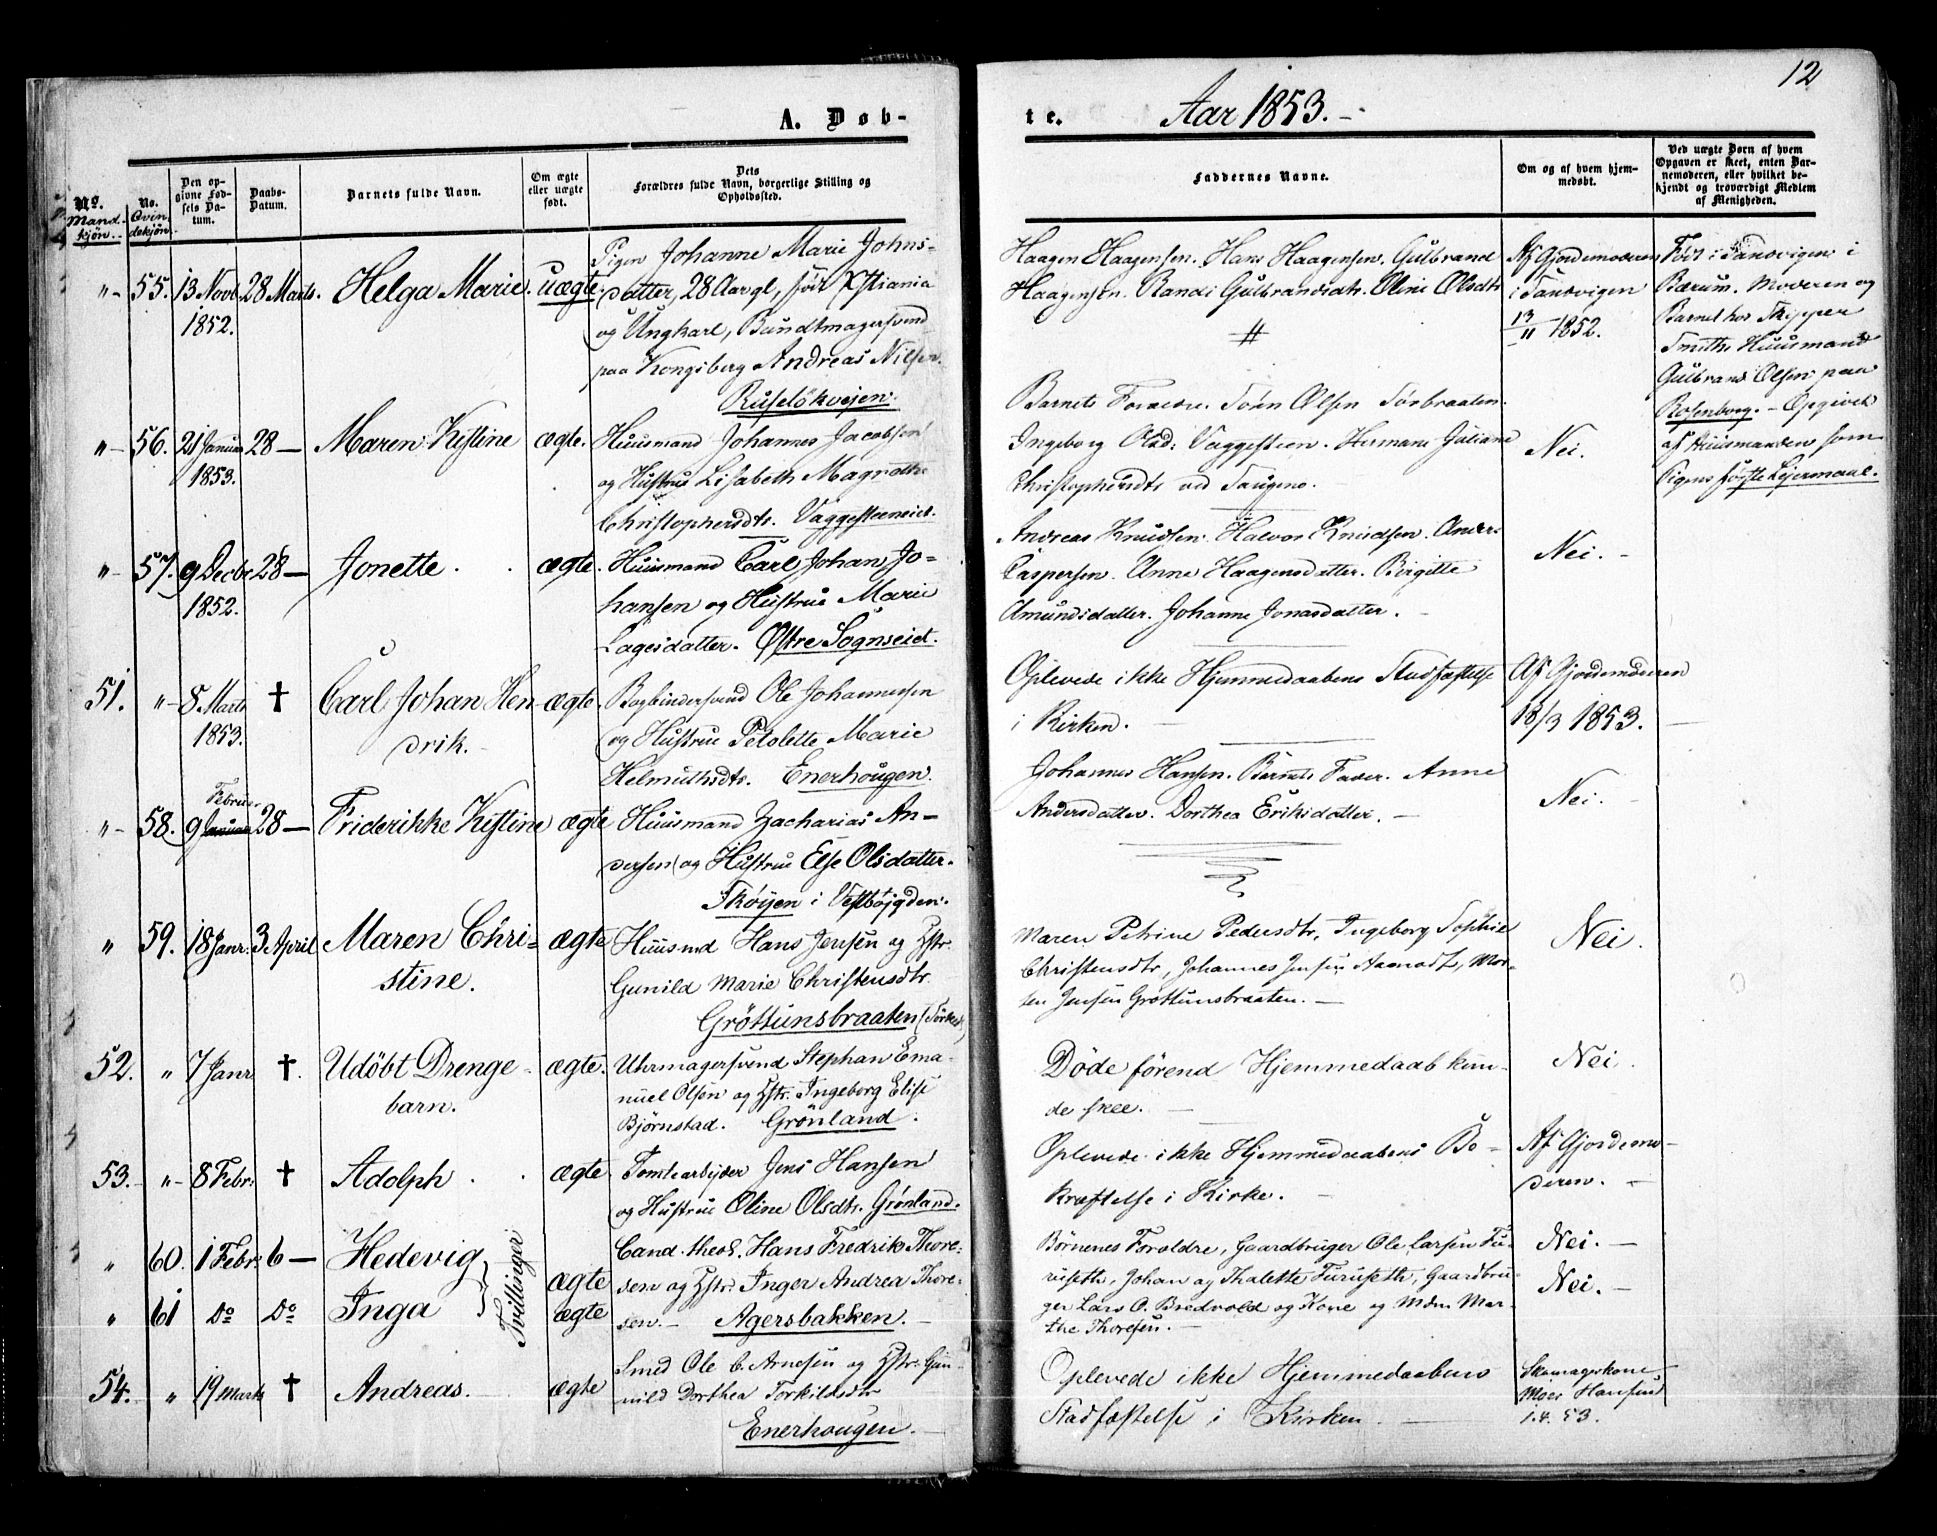 12
A. Døb-
te.
Aar 1853.
No.
Mand-
kjøn.
No.
Qvin-
dekjøn.
Den op-
givne Fød-
sels Da-
tum.
Daabs-
Datum.
Barnets fulde Navn.
Om ægte
eller uægte
født.
Dets
Forældres fulde Navn, borgerlige Stilling og
Opholdssted.
Faddernes Navne.
Om og af hvem hjem-
medøbt.
Ved uægte Børn af hvem
Opgaven er skeet, enten Bar-
nemoderen, eller hvilket be-
kjendt og troværdigt Medlem
af Menigheden.
"- 55. 13 Novb. 28 Marts. Helga Marie. uægte.
1852.
Pigen Johanne Marie Johns-
datter, 28 Aar gl, født Xstiania
og Ungkarl, Bundtmagersvend
paa Kongsberg Andreas Nilsen.
Ruseløkvejen.
Haagen Haagensen. Hans Haagensen. Gulbrand
Haagensen. Randi Gulbrandsdtr. Oline Olsdtr
Af Gjordemoderen
i Sandvigen
13/11 1852.
Født i Sandvigen i
Bærum. Moderen og
Barnet hos Skipper
Smiths Huusmand
Gulbrand Olsen paa
Rosenborg. - Opgivet
af Huusmanden som
Pigens første Lejermaal.
"- 56. 21 Januar 28 — Maren Kistine ægte.
1853.
Huusmand Johannes Jacobsen
og Hustrue Lisabeth Magrethe
Christophersdtr. Vaggesteneiet.
Barnets Forældre. Søren Olsen Sørbraaten.
Ingeborg Olsd: Vaggesteen. Hermane Juliane
Christophersdtr ved Saugene.
Nei.
"- 57. 9 Decbr. 28 — Jonette. ægte.
1852.
Huusmand Carl Johan Jo-
hansen og Hustrue Marie
Lagesdatter. Østre Sognseiet.
Andreas Knudsen. Halvor Knudsen. Anders
Caspersen. Anne Haagensdatter. Birgitte
Amundsdatter. Johanne Jonasdatter.
Nei. -
51. "- 8 Marts † Carl Johan Hen- ægte.
1853. drik.
Bogbindersvend Ole Johannesen
og Hustrue Petolette Marie
Helmuthsdtr. Enerhougen.
Oplevede ikke Hjemmedaabens Stadfæstelse
i Kirken.
Af Gjordemoderen
18/3 1853.
"- 58. 9 Februar 28 — Friderikke Kistine ægte
Huusmand Zacharias An-
dersen og Hustrue Else Olsdatter.
Skøyen i Vestbøygden.
Johannes Hansen. Barnets Fader. Anne
Andersdatter. Dorthea Eriksdatter.
Nei. -
" 59. 18 Janr. 3 April Maren Chri- ægte
stine.
Huusmd Hans Jensen og Hstr.
Gunild Marie Christensdtr.
Grøttunsbraaten (Sørkedl)
Maren Petrine Pedersdtr, Ingeborg Sophie
Christensdtr, Johannes Jensen Aamodt, Mor-
ten Jensen Grøttunsbraaten. -
Nei.
52. " 7 Janr †. Udöbt Drenge- ægte.
barn.
Uhrmagersvend Stephan Ema-
nuel Olsen og Hstr. Ingeborg Elise
Bjørnstad. Grönland.
Døde førend Hjemmedaab kun-
de skee. -
Nei.
53. "- 8 Febr. † Adolph. ægte.
Tomtearbejder Jens Hansen
og Hustrue Oline Olsdtr. Grønland.
Oplevede ikke Hjemmedaabens Be-
kræftelse i Kirke. -
Af Gjordemo-
deren. -
" 60. 1 Febr. 6 — Hedevig ægte
" 61 Do Do Inga ægte
Tvillinger
Cand. theol. Hans Fredrik Thore-
sen og Hstr. Inger Andrea Thore-
sen. - Agersbakken. -
Børnenes Forældre, Gaardbruger Ole Larsen Fu-
ruseth, Johan og Thalette Furuseth, Gaardbru-
ger Lars O. Bredvold og Kone og Mdm Mar-
the Thoresen. -
Nei. -
Nei. -
54. " 19 Marts † Andreas. ægte
Smed Ole C. Arnesen og Hstr. Gun-
nild Dorthea Torkildsdtr
Enerhougen. -
Oplevede ikke Hjemmedaabens
Stadfæstelse i Kirken. -
Skomagerkone
Moer Hansen
1.4.53.